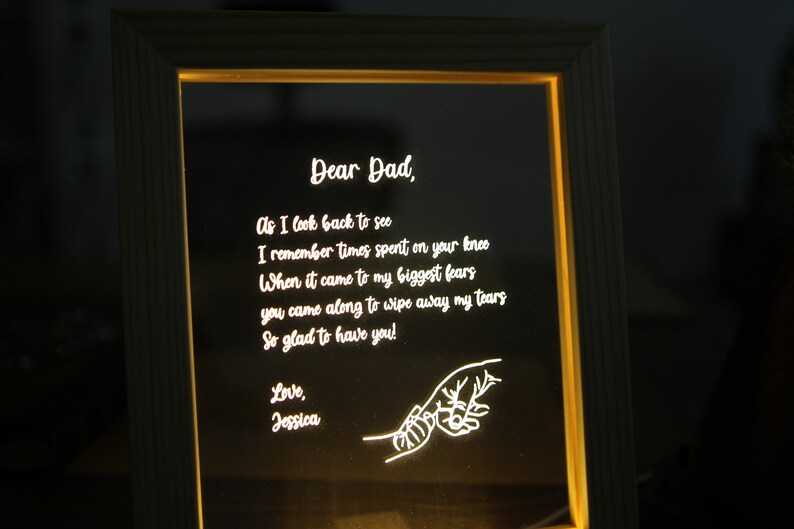 Dear Dad,
As I look back to see
I remember times spent on your knee
When it came to my biggest fears
you came along to wipe away my tears
So glad to have you!
Love,
Jessica